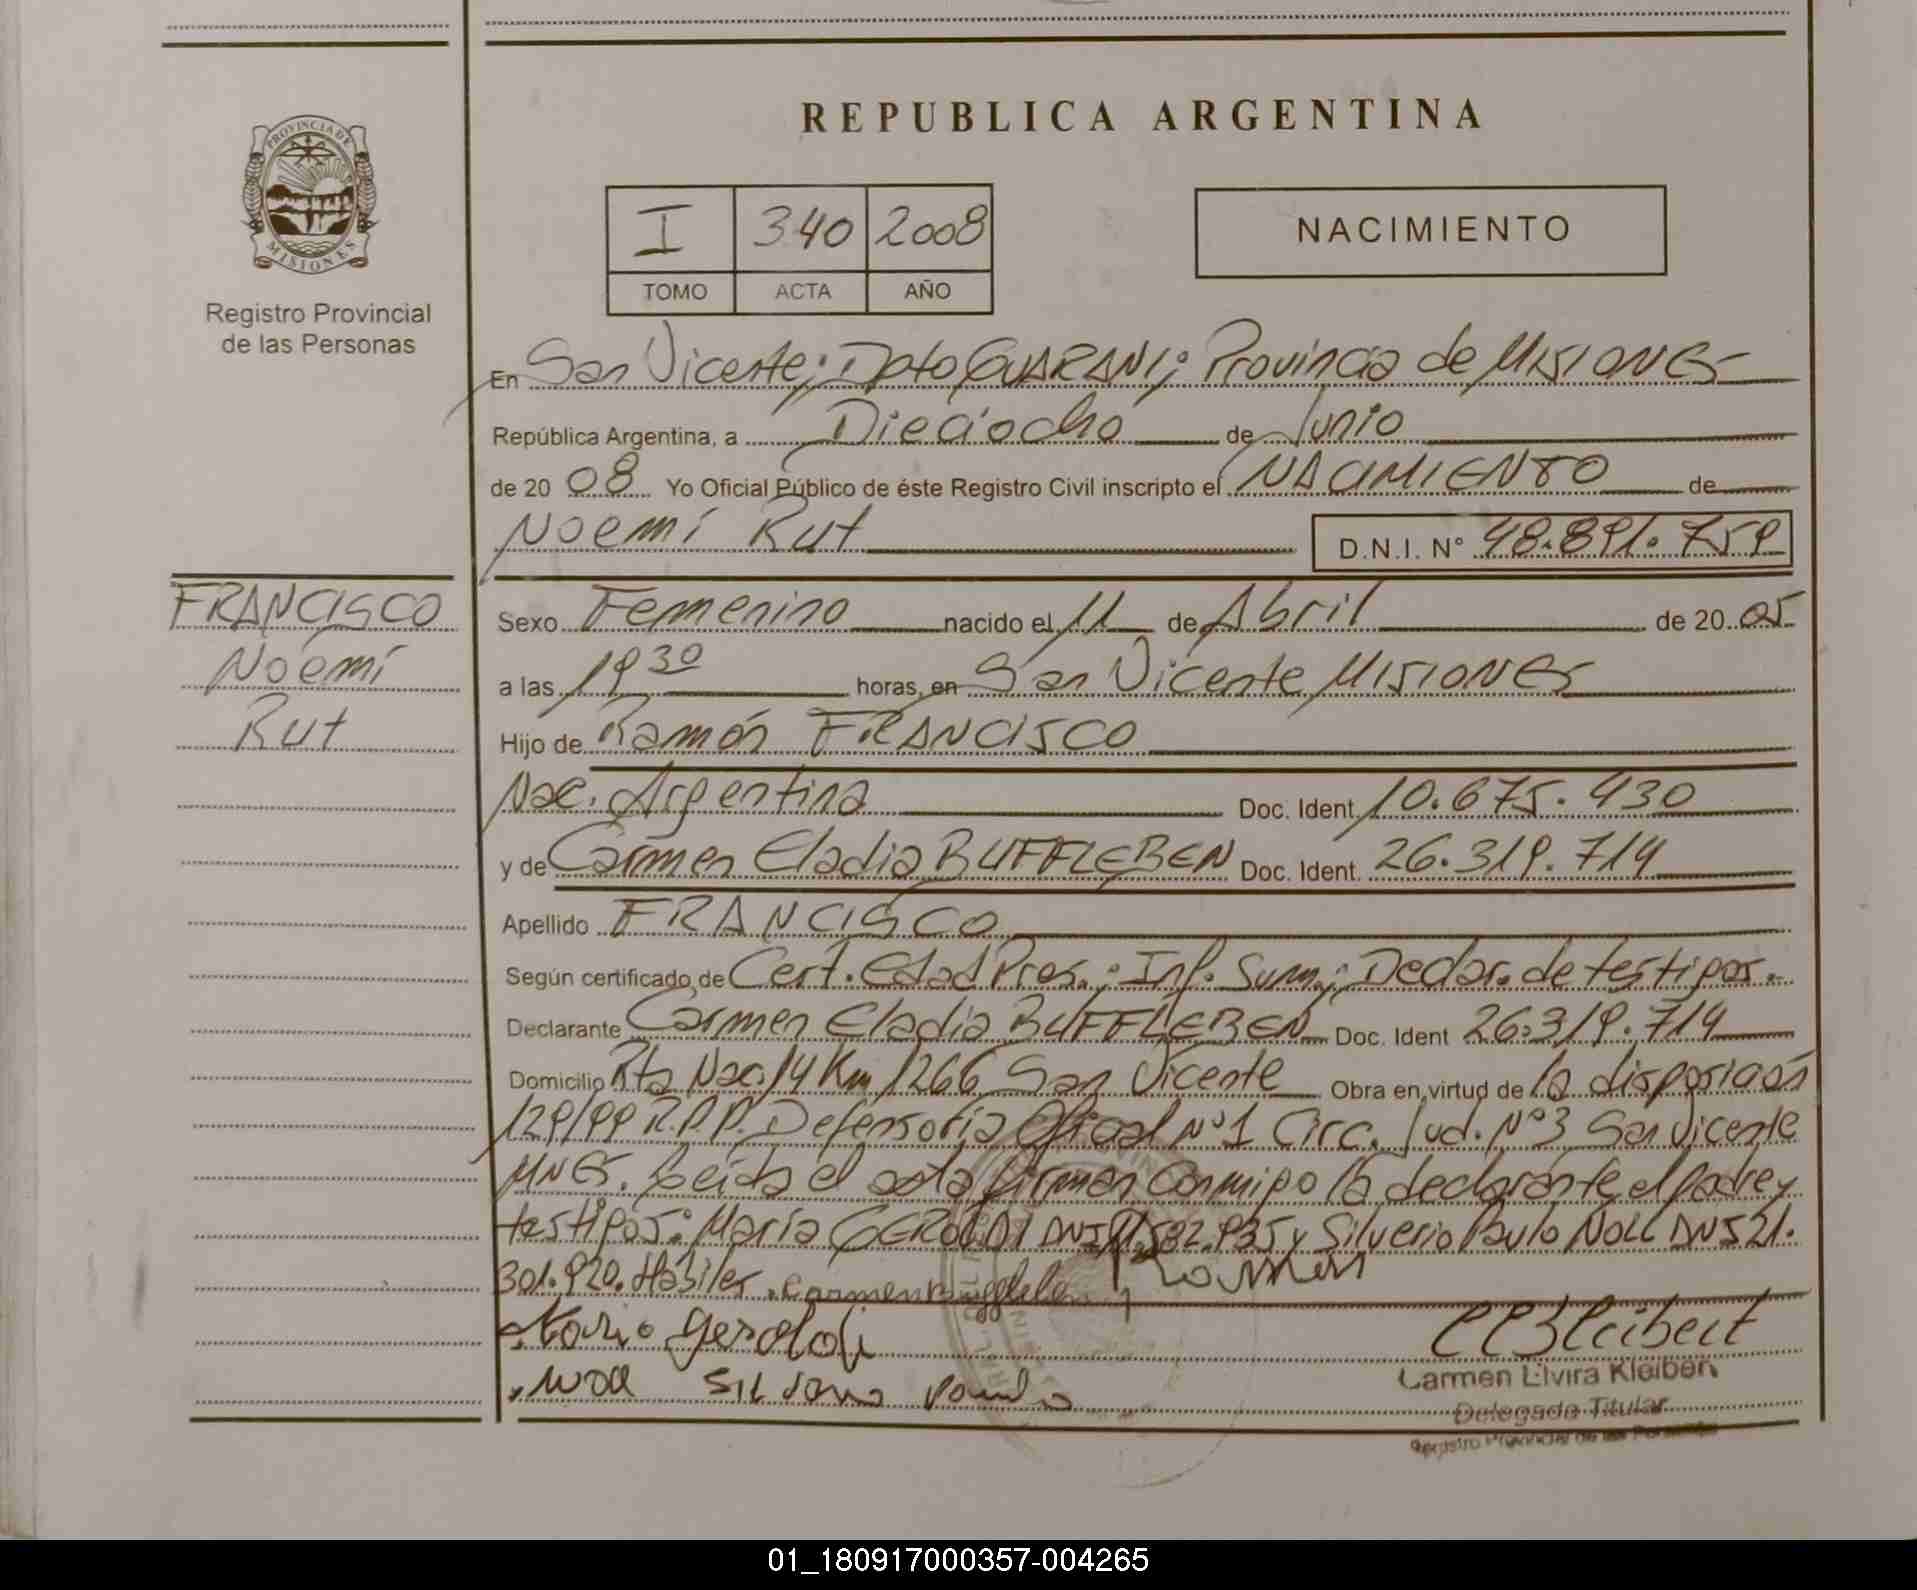 REPUBLICA ARGENTINA
PROVINCIA DE MISIONES
Registro Provincial
de las Personas
I 340 2008
TOMO ACTA AÑO
NACIMIENTO
En San Vicente; Dpto GUARANI; Provincia de MISIONES
República Argentina, a Dieciocho de Junio
de 20 08 Yo Oficial Público de éste Registro Civil inscripto el NACIMIENTO de
Noemí Rut D.N.I. N° 48.891.759
FRANCISCO
Noemí
Rut
Sexo Femenino nacido el 11 de Abril de 20 05
a las 19 30 horas, en San Vicente MISIONES
Hijo de Ramón FRANCISCO
Nac. Argentina Doc. Ident. 10.675.430
y de Carmen Eladia BUFFLEBEN Doc. Ident. 26.319.714
Apellido FRANCISCO
Según certificado de Cert. Edad Pres.; Inf. Sum.; Declar. de testigos.-
Declarante Carmen Eladia BUFFLEBEN Doc. Ident 26.319.714
Domicilio Rta Nac. 14 Km 1266 San Vicente Obra en virtud de la disposición
129/99 R.P.P. Defensoría Oficial N°1 Circ. Jud. N°3 San Vicente
MNES. Leída el acta firman conmigo la declarante, el padre y
testigos: María GEROLDI DNI 11.582.935 y Silverio Paulo NOLL DNI 21.
301.920. Hábiles. Carmen Buffleben Ramon
Geroldi
Noll
CEKleibert
Carmen Elvira Kleibert
Delegada Titular
Registro Provincial de las Personas
01_180917000357-004265